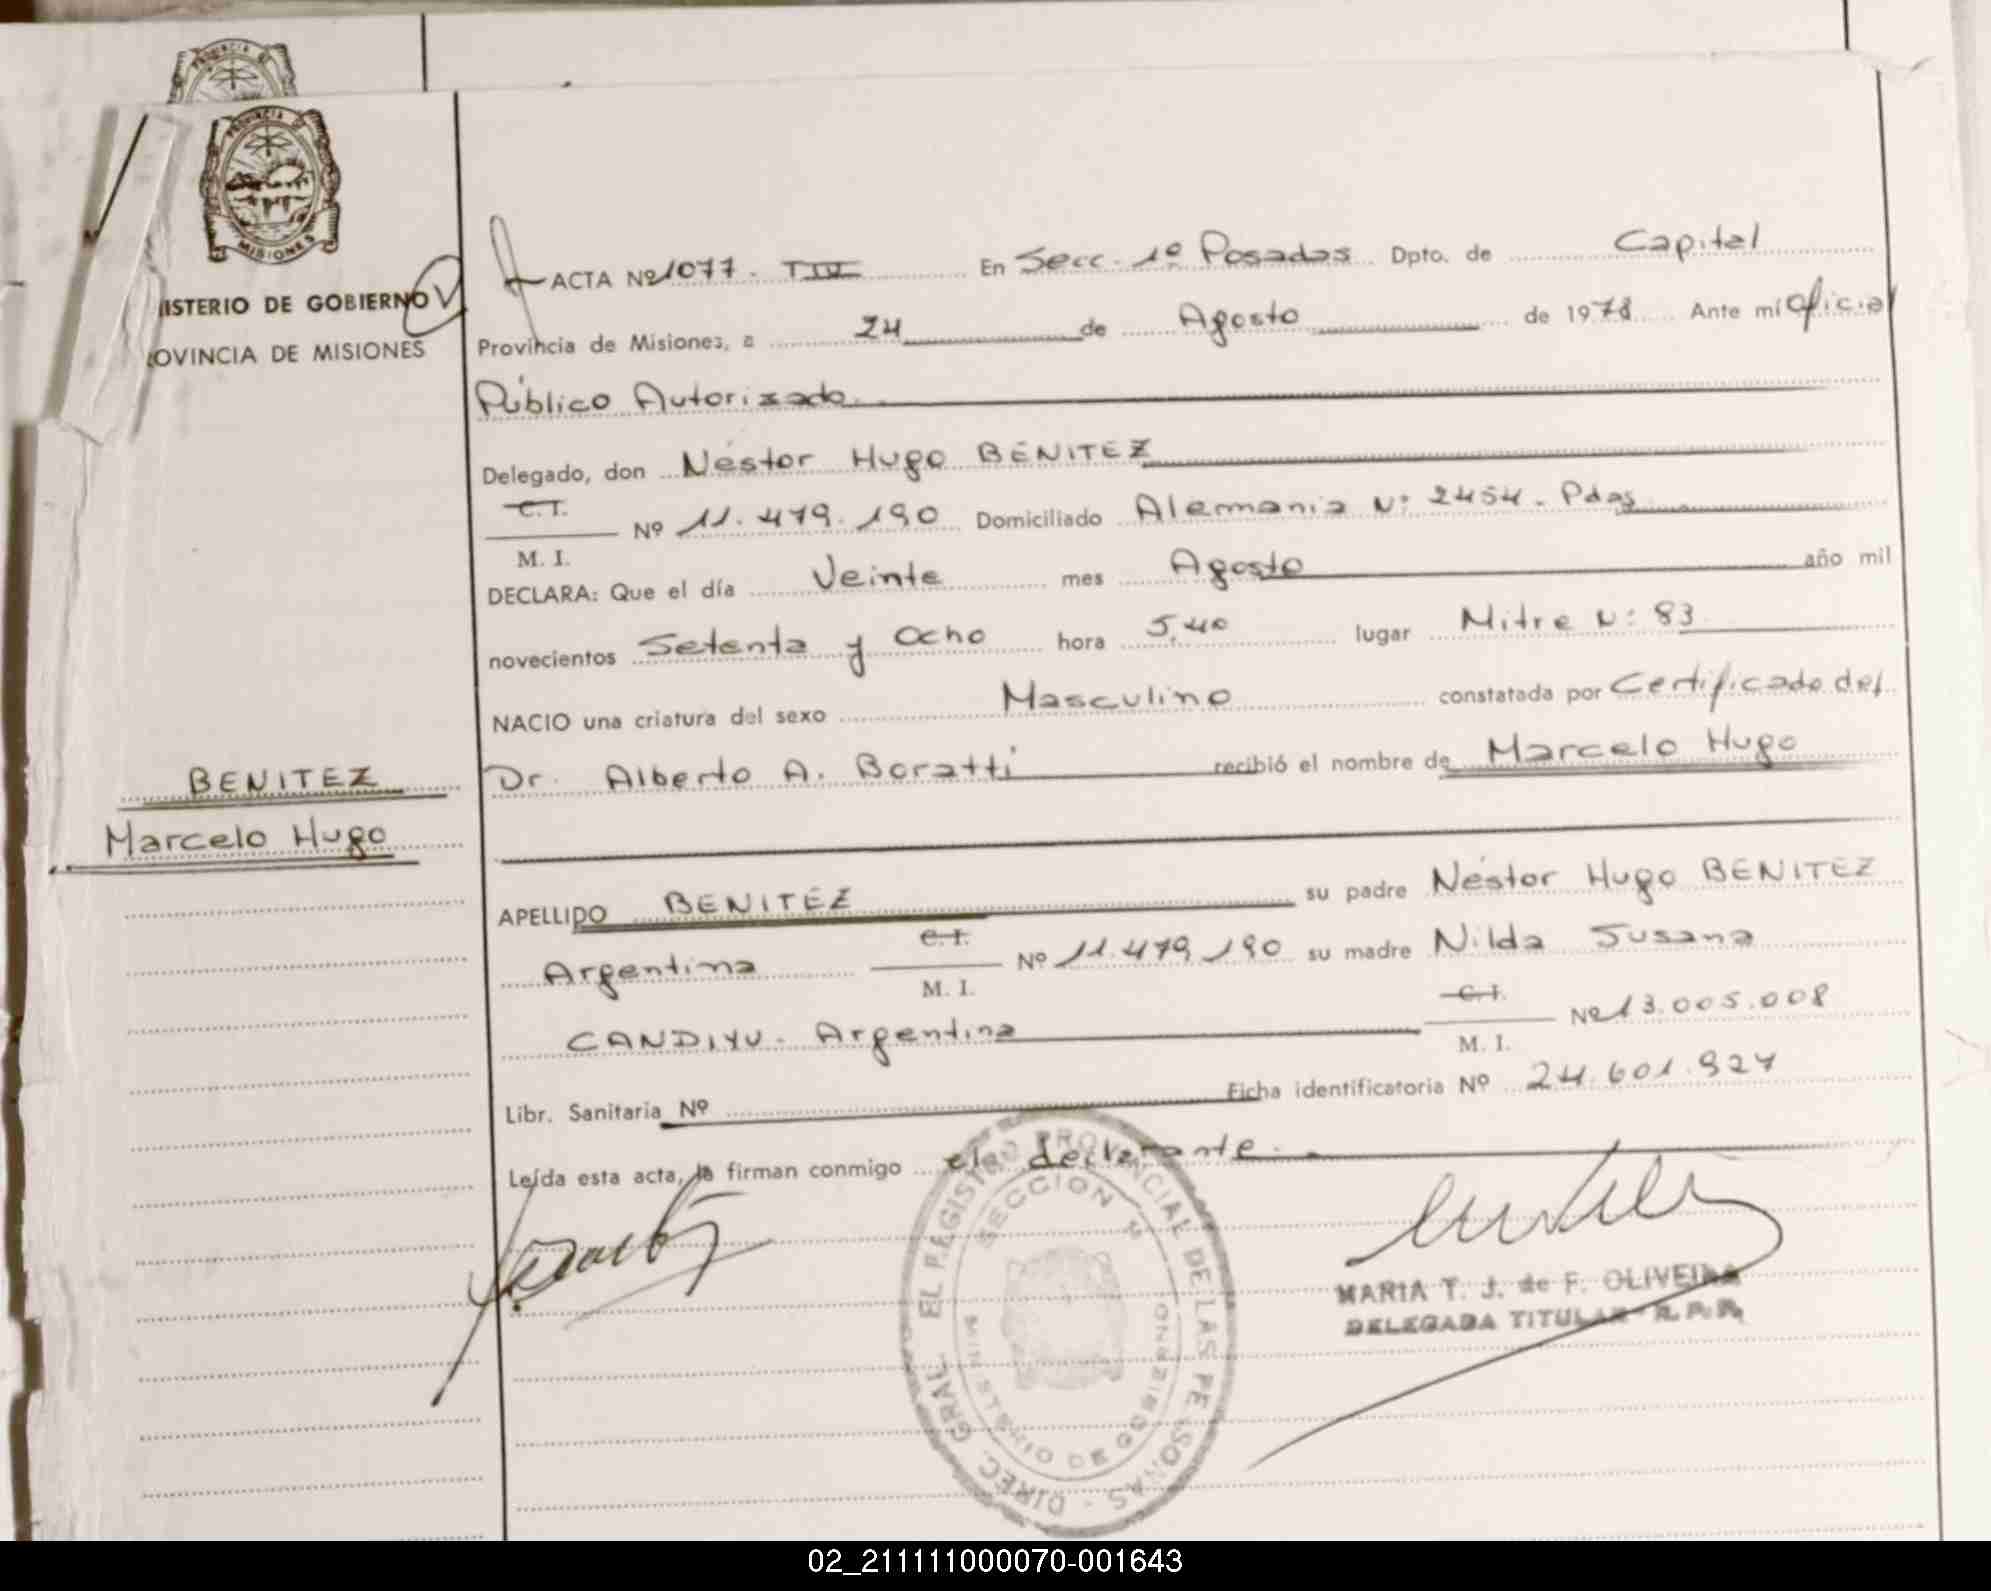 PROVINCIA DE
PROVINCIA DE
MISIONES
MINISTERIO DE GOBIERNO
PROVINCIA DE MISIONES
ACTA Nº 1077. TIV En Secc. 1º Posadas Dpto. de Capital
Provincia de Misiones, a 24 de Agosto de 1978 Ante mí Oficial
Público Autorizado.
Delegado, don Néstor Hugo BENITEZ
C.I.
M. I. Nº 11.479.190 Domiciliado Alemania Nº 2454. Pdas
DECLARA: Que el día Veinte mes Agosto año mil
novecientos Setenta y Ocho hora 5,40 lugar Mitre Nº 83
NACIO una criatura del sexo Masculino constatada por Certificado del
Dr. Alberto A. Boratti recibió el nombre de Marcelo Hugo
BENITEZ
Marcelo Hugo
APELLIDO BENITEZ su padre Néstor Hugo BENITEZ
Argentina C.I. M. I. Nº 11.479.190 su madre Nilda Susana
CANDIYU. Argentina C.I. M. I. Nº 13.005.008
Libr. Sanitaria Nº Ficha identificatoria Nº 24.601.927
Leída esta acta, la firman conmigo el declarante.
DIREC. GRAL. EL REGISTRO PROVINCIAL DE LAS PERSONAS
SECCION
MINISTERIO DE GOBIERNO
MARIA T. J. de F. OLIVEIRA
DELEGADA TITULAR - R. P. P.
02_211111000070-001643